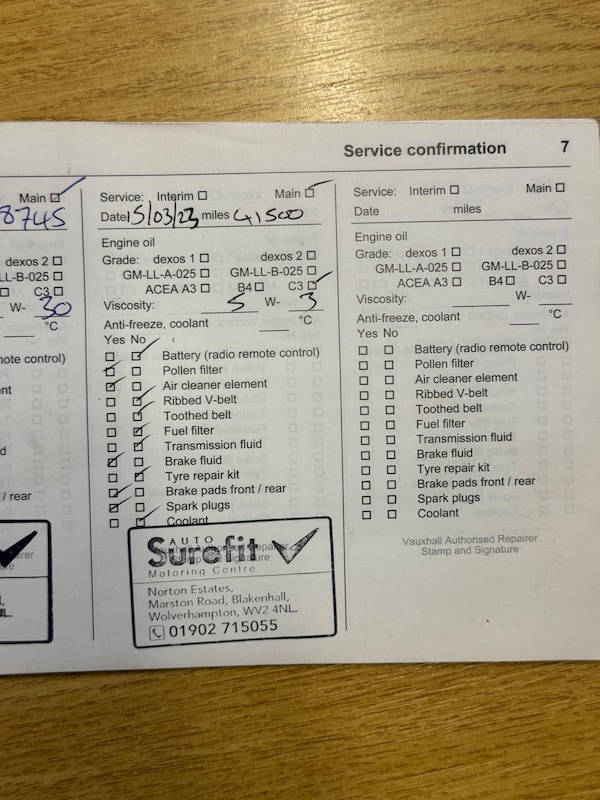 Service confirmation 7
Main
8745
dexos 2
LL-B-025
C3
W- 30
°C
note control)
/ rear
Service: Interim Main
Date 15/03/23 miles 41500
Engine oil
Grade: dexos 1 dexos 2
GM-LL-A-025 GM-LL-B-025
ACEA A3 B4 C3
Viscosity: 5 W- 3
Anti-freeze, coolant °C
Yes No
Battery (radio remote control)
Pollen filter
Air cleaner element
Ribbed V-belt
Toothed belt
Fuel filter
Transmission fluid
Brake fluid
Tyre repair kit
Brake pads front / rear
Spark plugs
Coolant
AUTO
Surefit
Motoring Centre
Norton Estates,
Marston Road, Blakenhall,
Wolverhampton, WV2 4NL.
01902 715055
Service: Interim Main
Date miles
Engine oil
Grade: dexos 1 dexos 2
GM-LL-A-025 GM-LL-B-025
ACEA A3 B4 C3
Viscosity: W-
Anti-freeze, coolant °C
Yes No
Battery (radio remote control)
Pollen filter
Air cleaner element
Ribbed V-belt
Toothed belt
Fuel filter
Transmission fluid
Brake fluid
Tyre repair kit
Brake pads front / rear
Spark plugs
Coolant
Vauxhall Authorised Repairer
Stamp and Signature